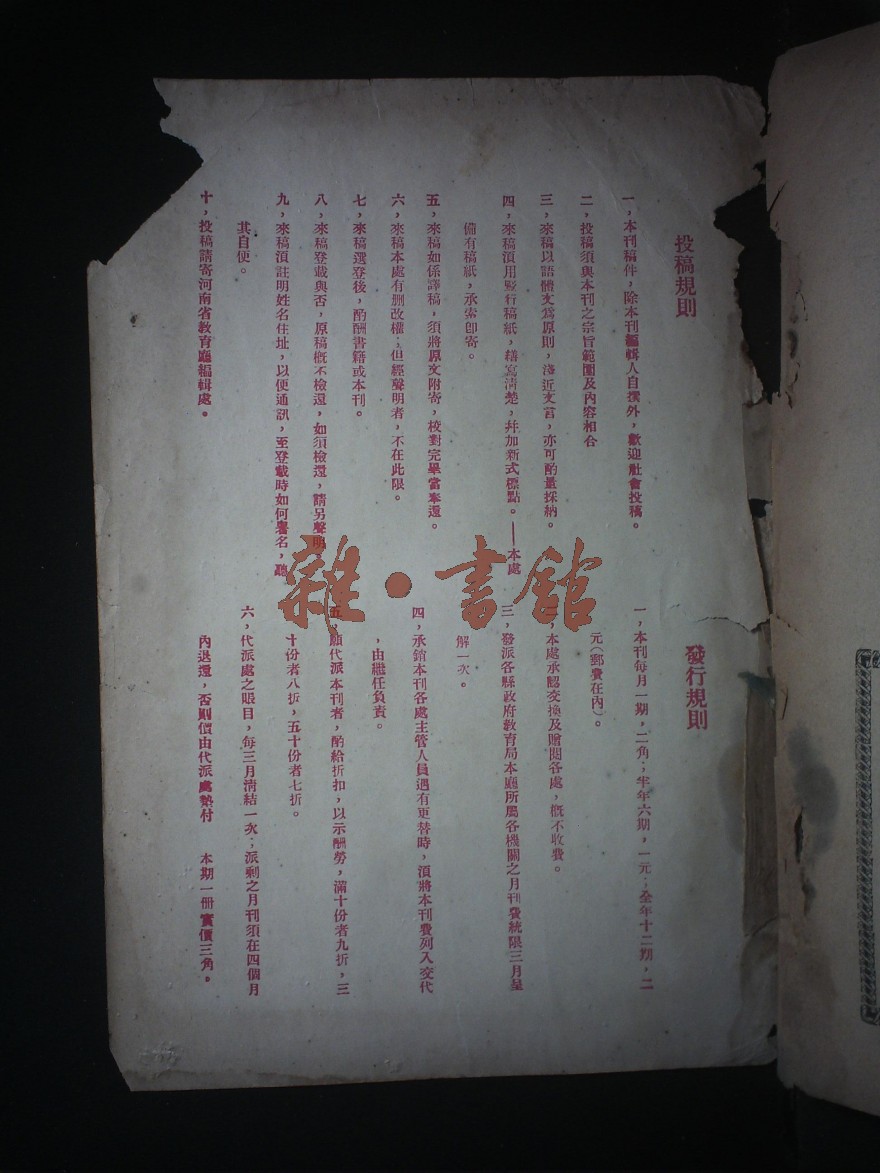 投稿規則
一，本刊稿件，除本刊編輯人自撰外，歡迎社會投稿。
二，投稿須與本刊之宗旨範圍及內容相合
三，來稿以語體文爲原則，淺近文言，亦可酌量採納。
四，來稿須用竪行稿紙，繕寫清楚，幷加新式標點。——本處
備有稿紙，承索卽寄。
五，來稿如係譯稿，須將原文附寄，校對完畢當奉還。
六，來稿本處有刪改權；但經聲明者，不在此限。
七，來稿選登後，酌酬書籍或本刊。
八，來稿登載與否，原稿槪不檢還，如須檢還，請另聲明
九，來稿須註明姓名住址，以便通訊，至登載時如何署名，聽
其自便。
十，投稿請寄河南省教育廳編輯處。
發行規則
一，本刊每月一期，二角；半年六期，一元；全年十二期，二
元（郵費在內）。
二，本處承認交換及贈閱各處，槪不收費。
三，發派各縣政府教育局本廳所屬各機關之月刊費統限三月呈
解一次。
四，承銷本刊各處主管人員遇有更替時，須將本刊費列入交代
，由繼任負責。
五，願代派本刊者，酌給折扣，以示酬勞，滿十份者九折，三
十份者八折，五十份者七折。
六，代派處之賬目，每三月清結一次；派剩之月刊須在四個月
內退還，否則價由代派處墊付
本期一冊實價三角。
雜·書館